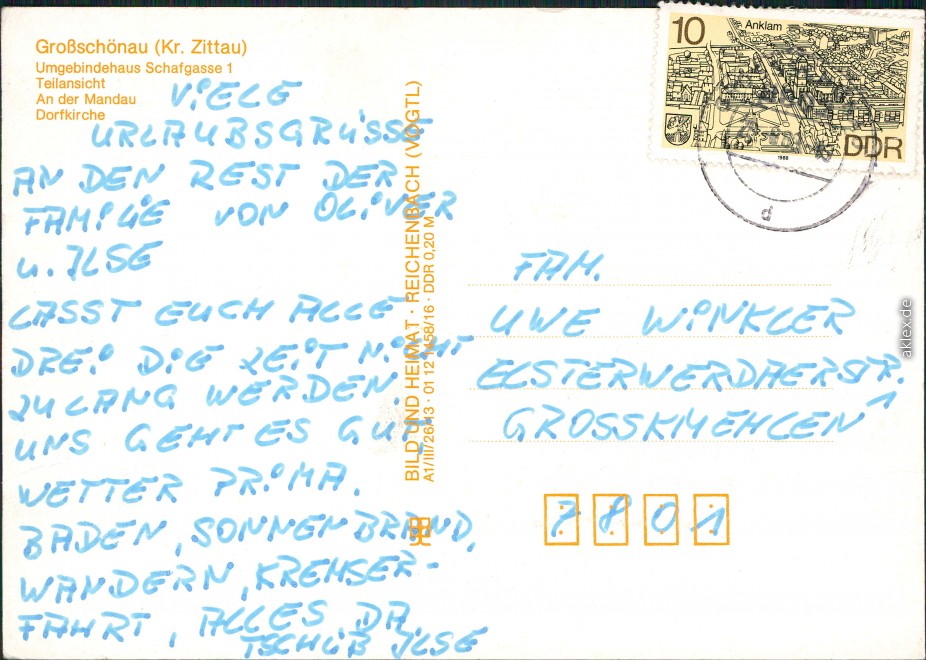 Großschönau (Kr. Zittau)
Umgebindehaus Schafgasse 1
Teilansicht
An der Mandau
Dorfkirche
VIELE
URLAUBSGRÜSSE
AN DEN REST DER
FAMILIE VON OLIVER
U. ILSE
LASST EUCH ALLE
DREI DIE ZEIT NICHT
ZU LANG WERDEN.
UNS GEHT ES GUT,
WETTER PRIMA.
BADEN, SONNENBRAND,
WANDERN, KREMSER-
FAHRT, ALLES DA
TSCHÜß ILSE
BILD UND HEIMAT · REICHENBACH (VOGTL)
A1/III/26/13 · 01 12 1458/16 · DDR 0,20 M
10
Anklam
DDR
1988
FAM.
UWE WINKLER
ELSTERWERDAERSTR.
1
GROSSKMEHLEN
7801
aklex.de